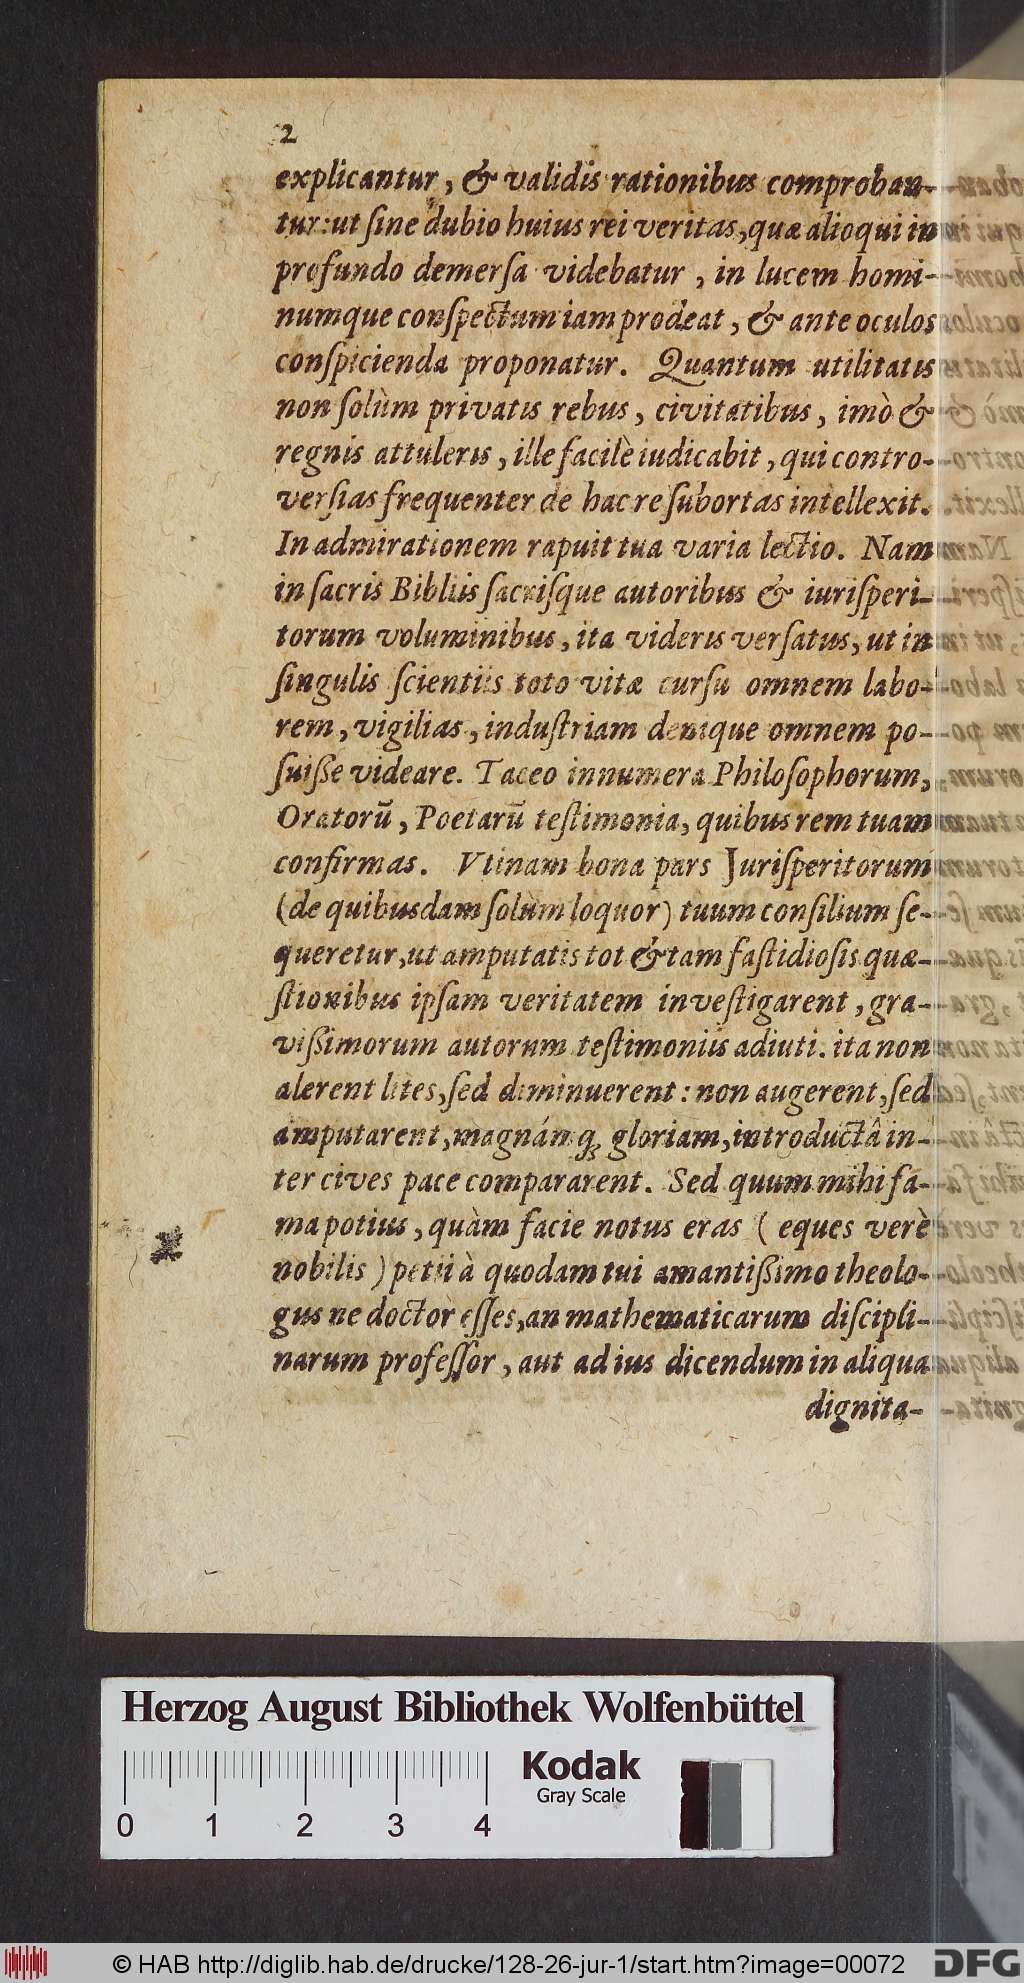 2
explicantur, & validis rationibus comproban-
tur: ut ſine dubio huius rei veritas, quæ alioqui in
profundo demerſa videbatur, in lucem homi-
numque conſpectum iam prodeat, & ante oculos
conſpicienda proponatur. Quantum utilitatis
non ſolùm privatis rebus, civitatibus, imò &
regnis attuleris, ille facilè iudicabit, qui contro-
verſias frequenter de hac re ſubortas intellexit.
In admirationem rapuit tua varia lectio. Nam
in ſacris Bibliis ſacriſque autoribus & iuriſperi-
torum voluminibus, ita videris verſatus, ut in
ſingulis ſcientiis toto vitæ curſu omnem labo-
rem, vigilias, induſtriam denique omnem po-
ſuiße videare. Taceo innumera Philoſophorum,
Oratorū, Poetarū teſtimonia, quibus rem tuam
confirmas. Vtinam bona pars Juriſperitorum
(de quibusdam ſolùm loquor) tuum conſilium ſe-
queretur, ut amputatis tot & tam faſtidioſis quæ-
ſtionibus ipſam veritatem inveſtigarent, gra-
vißimorum autorum teſtimoniis adiuti. ita non
alerent lites, ſed diminuerent: non augerent, ſed
amputarent, magnámq́; gloriam, introductâ in-
ter cives pace compararent. Sed quum mihi fa-
ma potius, quàm facie notus eras ( eques verè
nobilis ) petii à quodam tui amantißimo theolo-
gus ne doctor eſſes, an mathematicarum diſcipli-
narum profeſſor, aut ad ius dicendum in aliqua
dignita-
Herzog August Bibliothek Wolfenbüttel
Kodak
Gray Scale
0 1 2 3 4
© HAB http://diglib.hab.de/drucke/128-26-jur-1/start.htm?image=00072
DFG